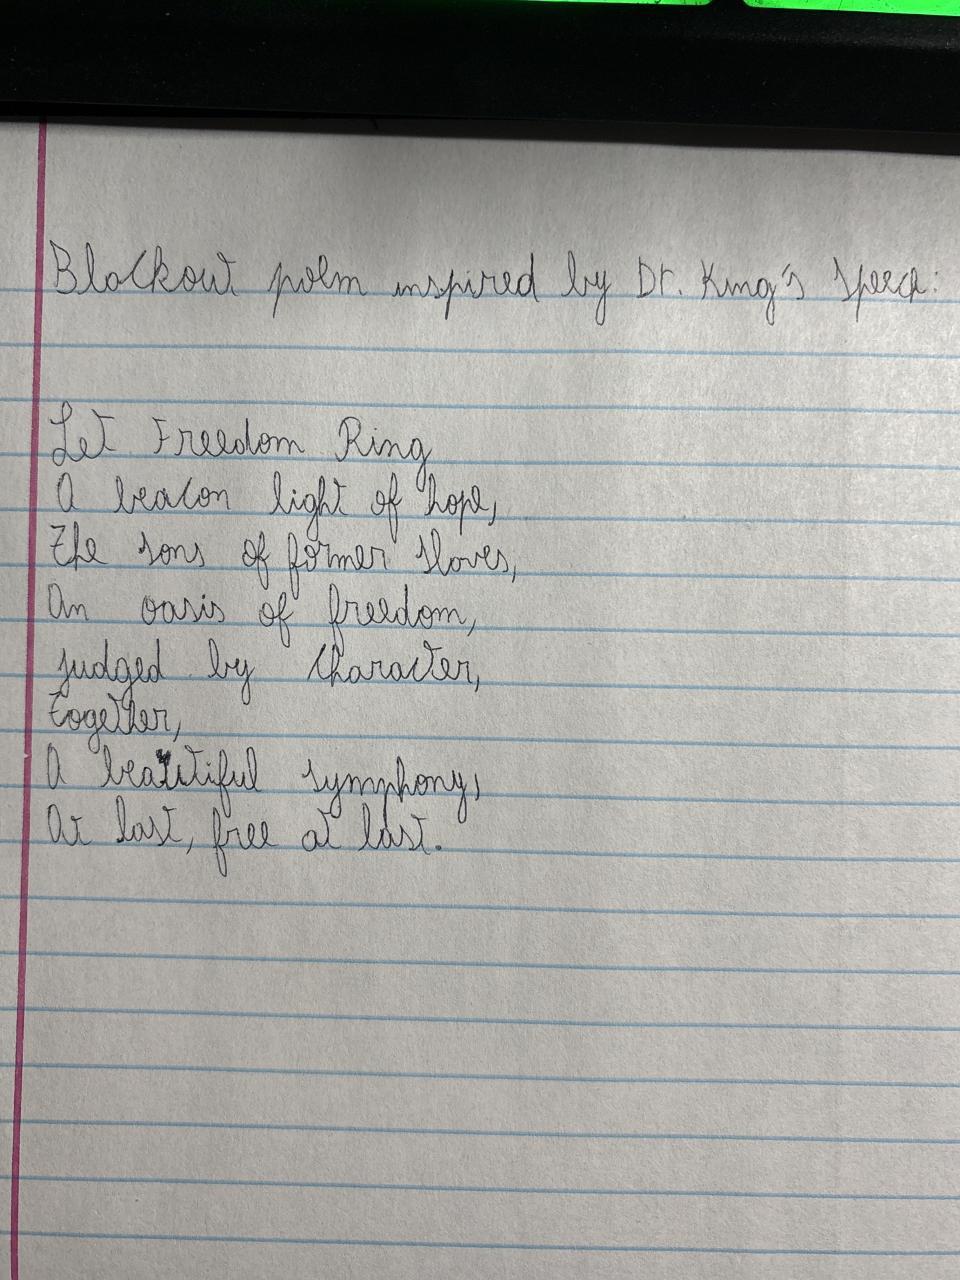 Blackout poem inspired by Dr. King's Speech:
Let Freedom Ring
A beacon light of hope,
The sons of former slaves,
An oasis of freedom,
judged by character,
together,
A beautiful symphony,
At last, free at last.